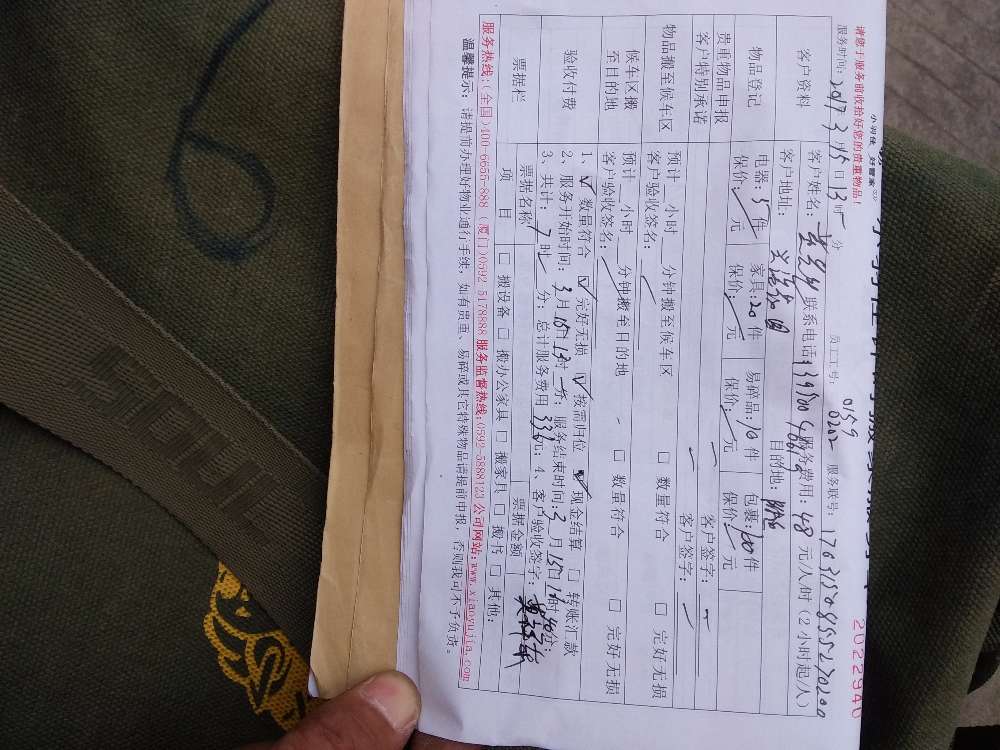 小羽佳 好管家
2022940
请您于服务前收拾好您的贵重物品！
员工工号： 0159 0202
服务联号：
服务时间：2017 3月15日13时 分
客户资料
客户姓名： 联系电话： 服务费用：48 元/人/时（2小时起/人）
客户地址： 目的地：
物品登记
电器：5件 家具：20件 易碎品：10件 包裹： 件
保价： 元 保价： 元 保价： 元 保价： 元
贵重物品申报 客户签字：
客户特别承诺 客户签字：
物品搬至候车区
预计 小时 分钟搬至候车区 □ 数量符合 □ 完好无损
客户验收签名：
候车区搬至目的地
预计 小时 分钟搬至目的地 □ 数量符合 □ 完好无损
客户验收签名：
验收付费
1、☑ 数量符合 ☑ 完好无损 ☑ 按需归位 ☑ 现金结算 □ 转账汇款
2、服务开始时间：3月15日13时 分；服务结束时间：3月15日 时 分；
3、共计：7时 分；总计服务费用336元；4、客户验收签字：
票据栏
票据名称 票据金额
项目 □ 搬设备 □ 搬办公家具 □ 搬家具 □ 搬书 □ 其他：
服务热线：（全国）400-6655-888（厦门）0592-5178888 服务监督热线：0592-5888123 公司网站：www.xiaoyujia.com
温馨提示：请提前办理好物业通行手续，如有贵重、易碎或其它特殊物品请提前申报，否则我司不予负责。